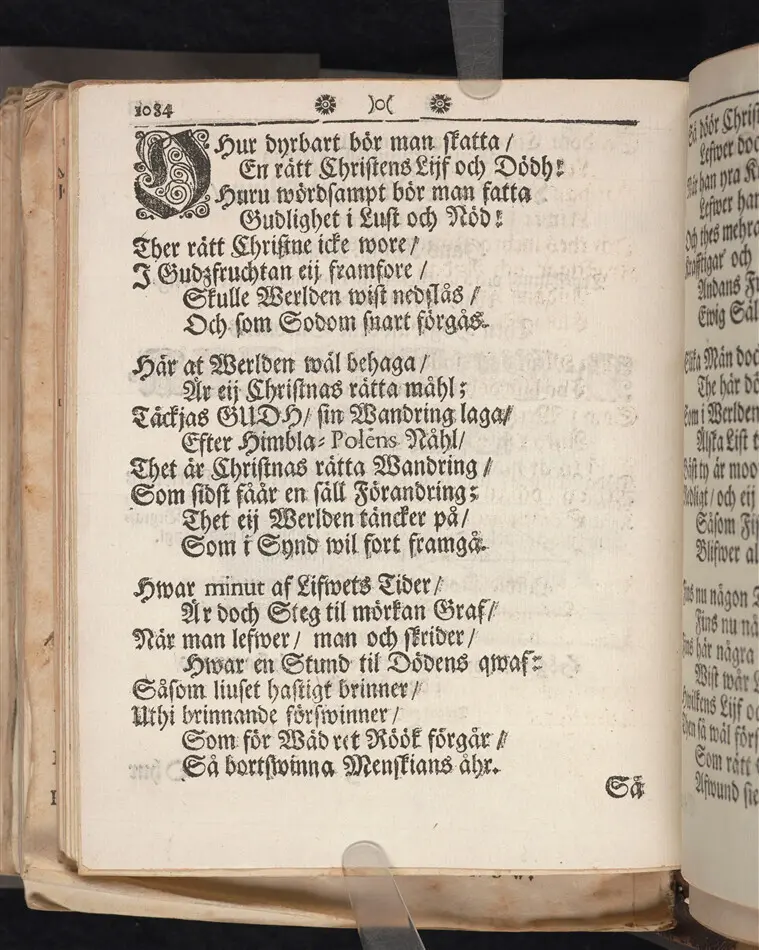 1084
Hur dyrbart bör man skatta /
En rätt Christens Lijf och Dödh!
Huru wördsampt bör man fatta
Gudlighet i Lust och Nöd!
Ther rätt Christne icke wore /
I Gudzfruchtan eij framfore /
Skulle Werlden wist nedslås /
Och som Sodom snart förgås.
Här at Werlden wäl behaga /
Är eij Christnas rätta måhl;
Täckjas GUDH / sin Wandring laga /
Efter Himbla-Polens Nåhl /
Thet är Christnas rätta Wandring /
Som sidst fåår en säll Förandring;
Thet eij Werlden täncker på /
Som i Synd wil fort framgå.
Hwar minut af Lifwets Tider /
Är doch Steg til mörkan Graf /
När man lefwer / man och skrider /
Hwar en Stund til Dödens qwaf:
Såsom liuset hastigt brinner /
Uthi brinnande förswinner /
Som för Wädret Röök förgår /
Så bortswinna Menskians åhr.
Så
så döör Christ
Lefwer doc
han yra
Lefwer har
Och thes mehra
och
Andans
Ewig Säl
Män doc
The här
i Werlden
Älska List
är moo
och eij
Såsom
Blifwer al
nu någon
Fins nu nå
här några
Wist wår
Lijf oc
så wäl förs
Som rätt
Afwund sie